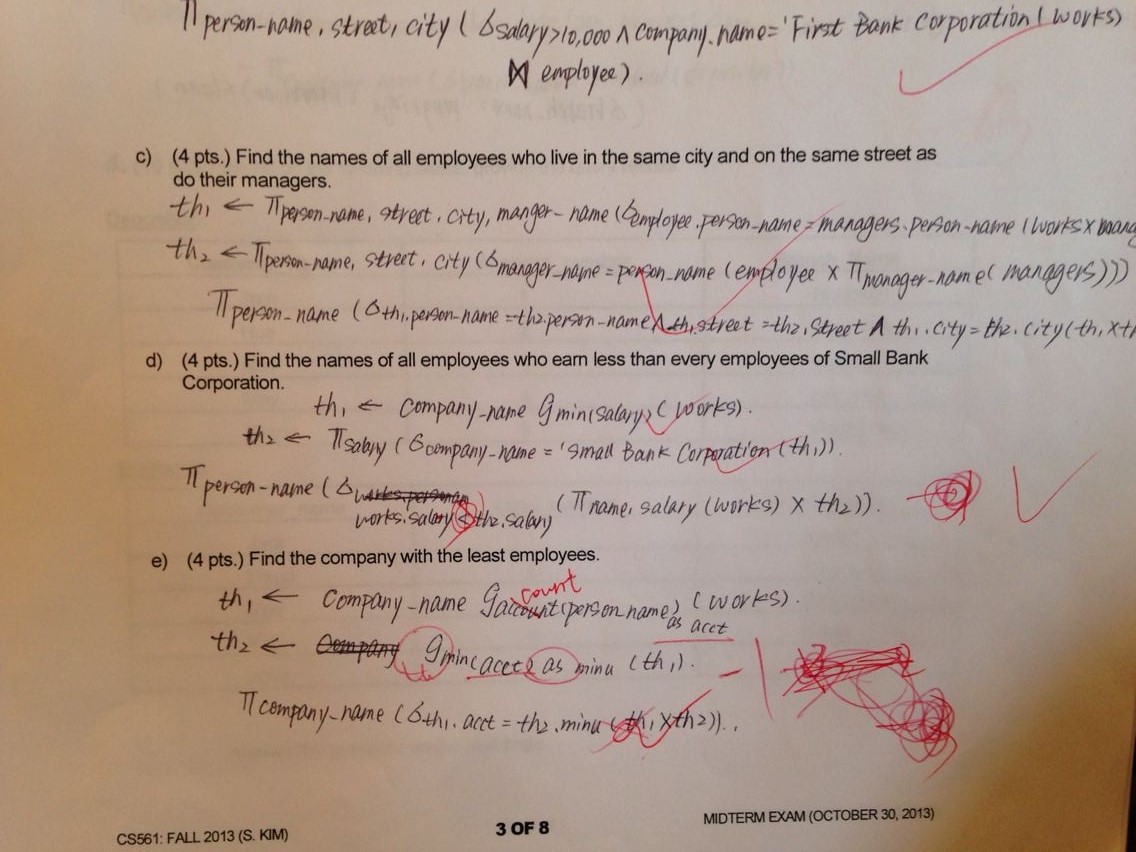 Π person-name, street, city ( σ salary>10,000 ∧ Company.name='First Bank Corporation (works)
⋈ employee).
c) (4 pts.) Find the names of all employees who live in the same city and on the same street as
do their managers.
th₁ ← Π person-name, street, city, manger-name (σ employee.person-name = managers.person-name (works x
th₂ ← Π person-name, street, city (σ manager-name = person_name (employee x Π manager-name( managers)))
Π person-name (σ th₁.person-name = th₂.person-name ∧ th₁.street = th₂.street ∧ th₁.city = th₂.city (th₁ x
d) (4 pts.) Find the names of all employees who earn less than every employees of Small Bank
Corporation.
th₁ ← Company-name g min(salary) (works).
th₂ ← Π salary (σ company-name = 'Small Bank Corporation (th₁)).
Π person-name (σ works.salary < th₂.salary (Π name, salary (works) X th₂)).
e) (4 pts.) Find the company with the least employees.
count
th₁ ← Company-name g account(person name) (works).
as acct
th₂ ← Company g min(acct) as minu (th₁).
-1
Π company-name (σ th₁.acct = th₂.minu (th₁ x th₂)).
CS561: FALL 2013 (S. KIM)
3 OF 8
MIDTERM EXAM (OCTOBER 30, 2013)